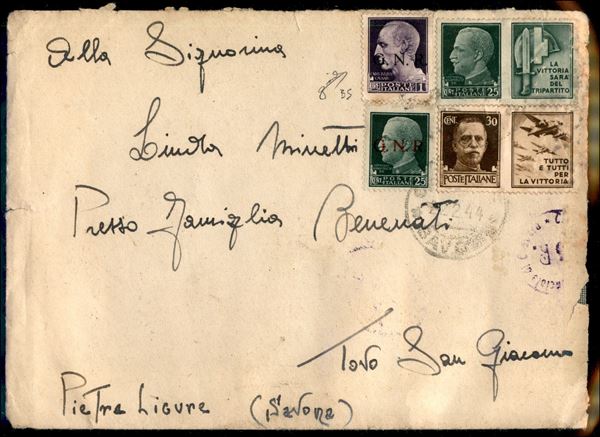 Alla Signorina
Linda Minetti
Presso Famiglia Benenati
Tovo San Giacomo
Pietra Ligure (Savona)
G. N. R.
POSTE ITALIANE 1
POSTE ITALIANE 25
LA
VITTORIA
SARÀ
DEL
TRIPARTITO
G. N. R
POSTE ITALIANE 25
CENT. 30
POSTE ITALIANE
TUTTO
E TUTTI
PER
LA VITTORIA
44
SAVONA